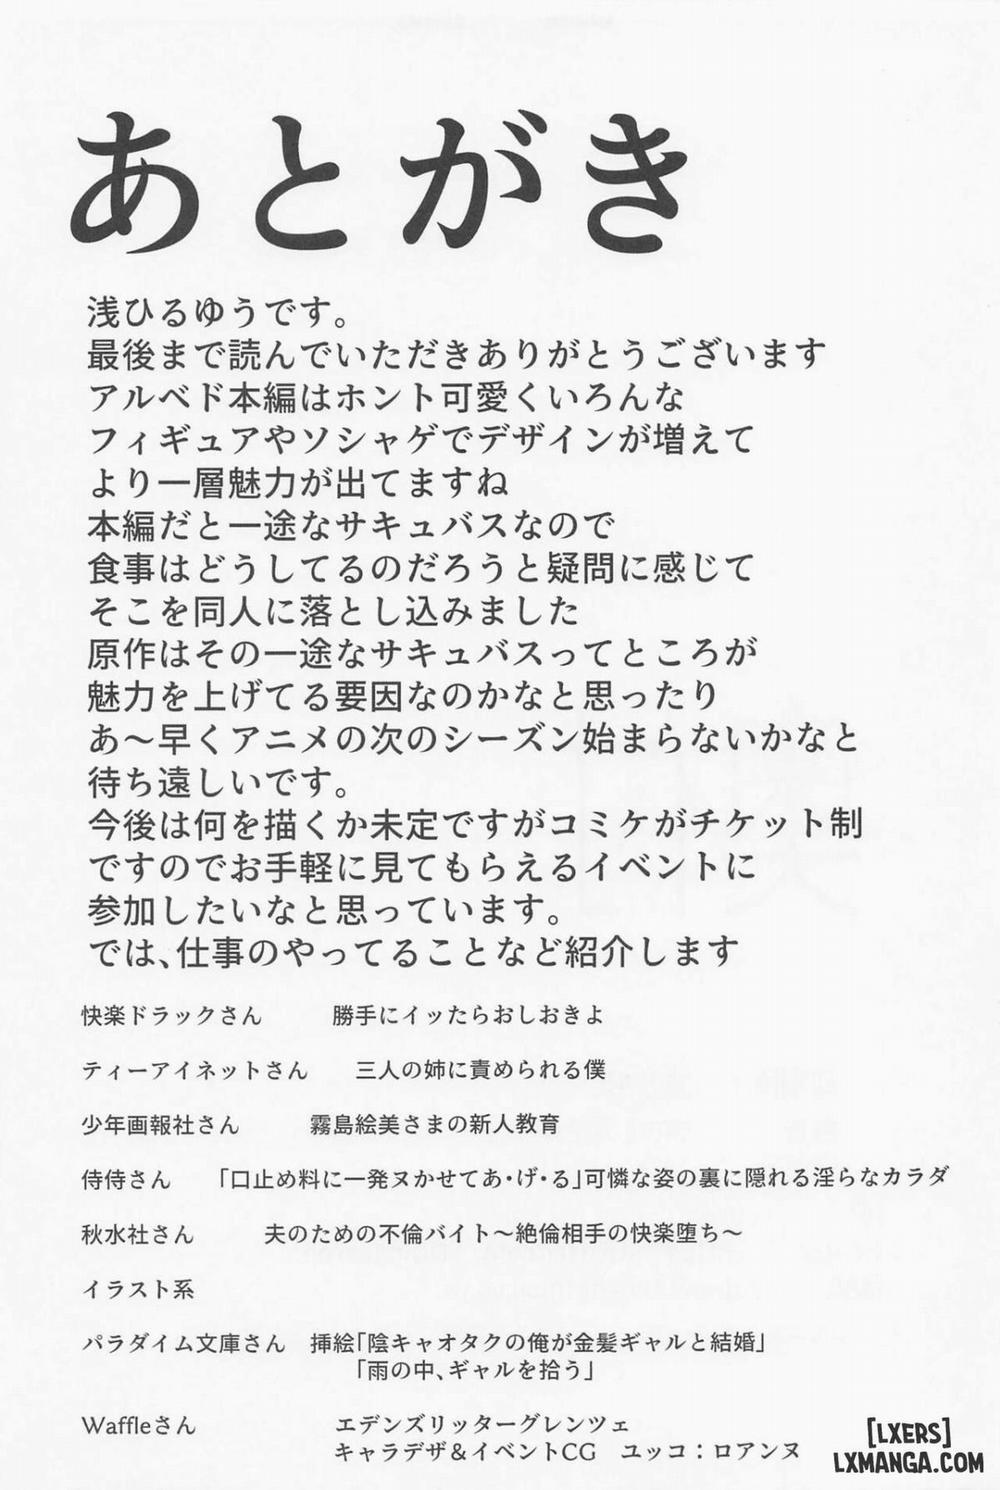 あとがき
浅ひるゆうです。
最後まで読んでいただきありがとうございます
アルベド本編はホント可愛くいろんな
フィギュアやソシャゲでデザインが増えて
より一層魅力が出てますね
本編だと一途なサキュバスなので
食事はどうしてるのだろうと疑問に感じて
そこを同人に落とし込みました
原作はその一途なサキュバスってところが
魅力を上げてる要因なのかなと思ったり
あ～早くアニメの次のシーズン始まらないかなと
待ち遠しいです。
今後は何を描くか未定ですがコミケがチケット制
ですのでお手軽に見てもらえるイベントに
参加したいなと思っています。
では、仕事のやってることなど紹介します
快楽ドラックさん　勝手にイッたらおしおきよ
ティーアイネットさん　三人の姉に責められる僕
少年画報社さん　霧島絵美さまの新人教育
侍侍さん　「口止め料に一発ヌかせてあ・げ・る」可憐な姿の裏に隠れる淫らなカラダ
秋水社さん　夫のための不倫バイト～絶倫相手の快楽堕ち～
イラスト系
パラダイム文庫さん　挿絵「陰キャオタクの俺が金髪ギャルと結婚」
「雨の中、ギャルを拾う」
Waffleさん　エデンズリッターグレンツェ
キャラデザ＆イベントCG　ユッコ：ロアンヌ
[LXERS]
LXMANGA.COM